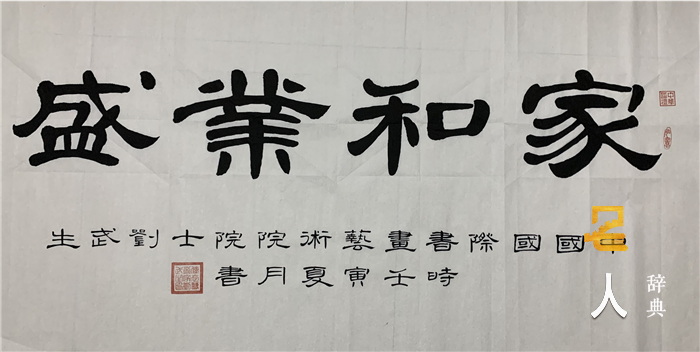 家和業盛
中國國際書畫藝術院院士劉武生
時壬寅夏月書
名人辞典